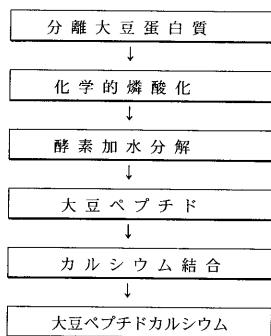 分離大豆蛋白質
↓
化学的燐酸化
↓
酵素加水分解
↓
大豆ペプチド
↓
カルシウム結合
↓
大豆ペプチドカルシウム